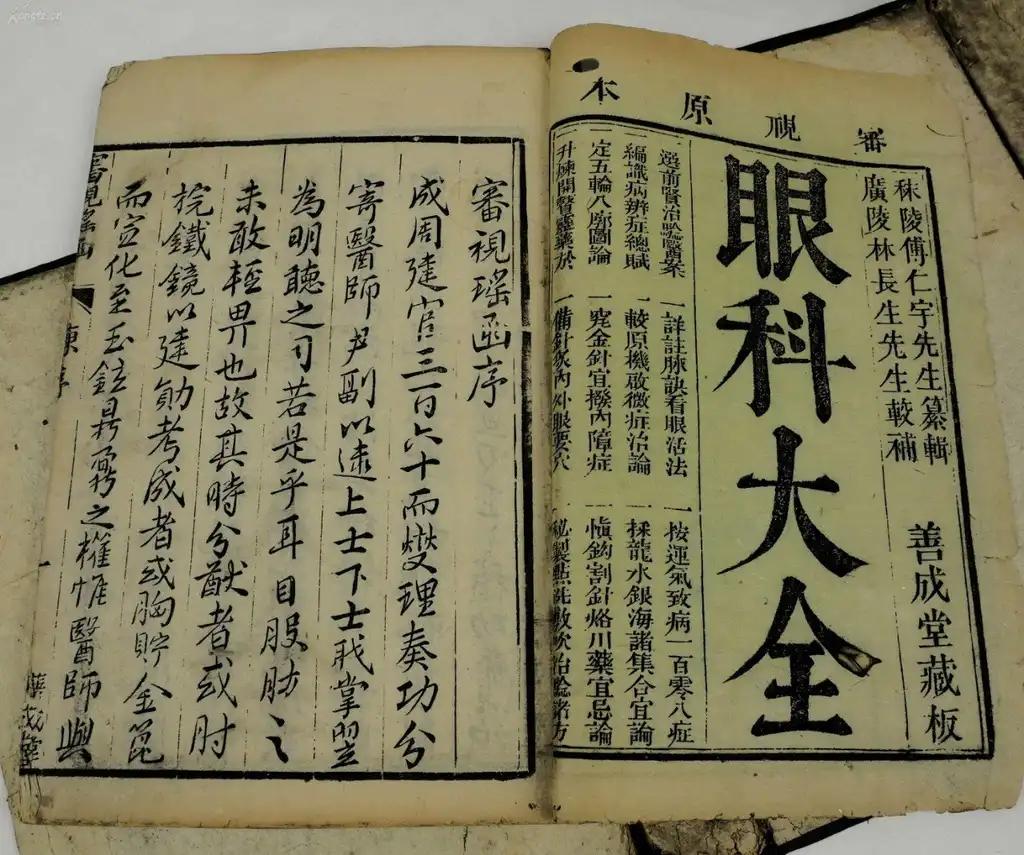 審視原本
秣陵傅仁宇先生纂輯
廣陵林長生先生較補
善成堂藏板
眼科大全
一選前賢治驗醫案 一詳註脉訣看眼活法 一按運氣致病一百零八症
一編識病辨症總賦 一較原機啟微症治論 一採龍水銀海諸集合宜論
一定五輪八廓圖論 一究金針宜撥內障症 一慎鈎割針烙川藥宜忌論
升煉開瞽 藥於 一備針灸內外眼要穴 秘製點洗敷吹治諸方
審視瑤函序
成周建官三百六十而爕理奏功分
寄醫師尹副以逮上士下士職掌壐
為明聽之司若是乎耳目股肱之
未敢輕畀也故其時分猷者或肘
捖鐵鏡以建勛考成者或胸貯金篦
而宣化至玉鉉鼎鼐之權惟醫師與
審視瑤函
序
一